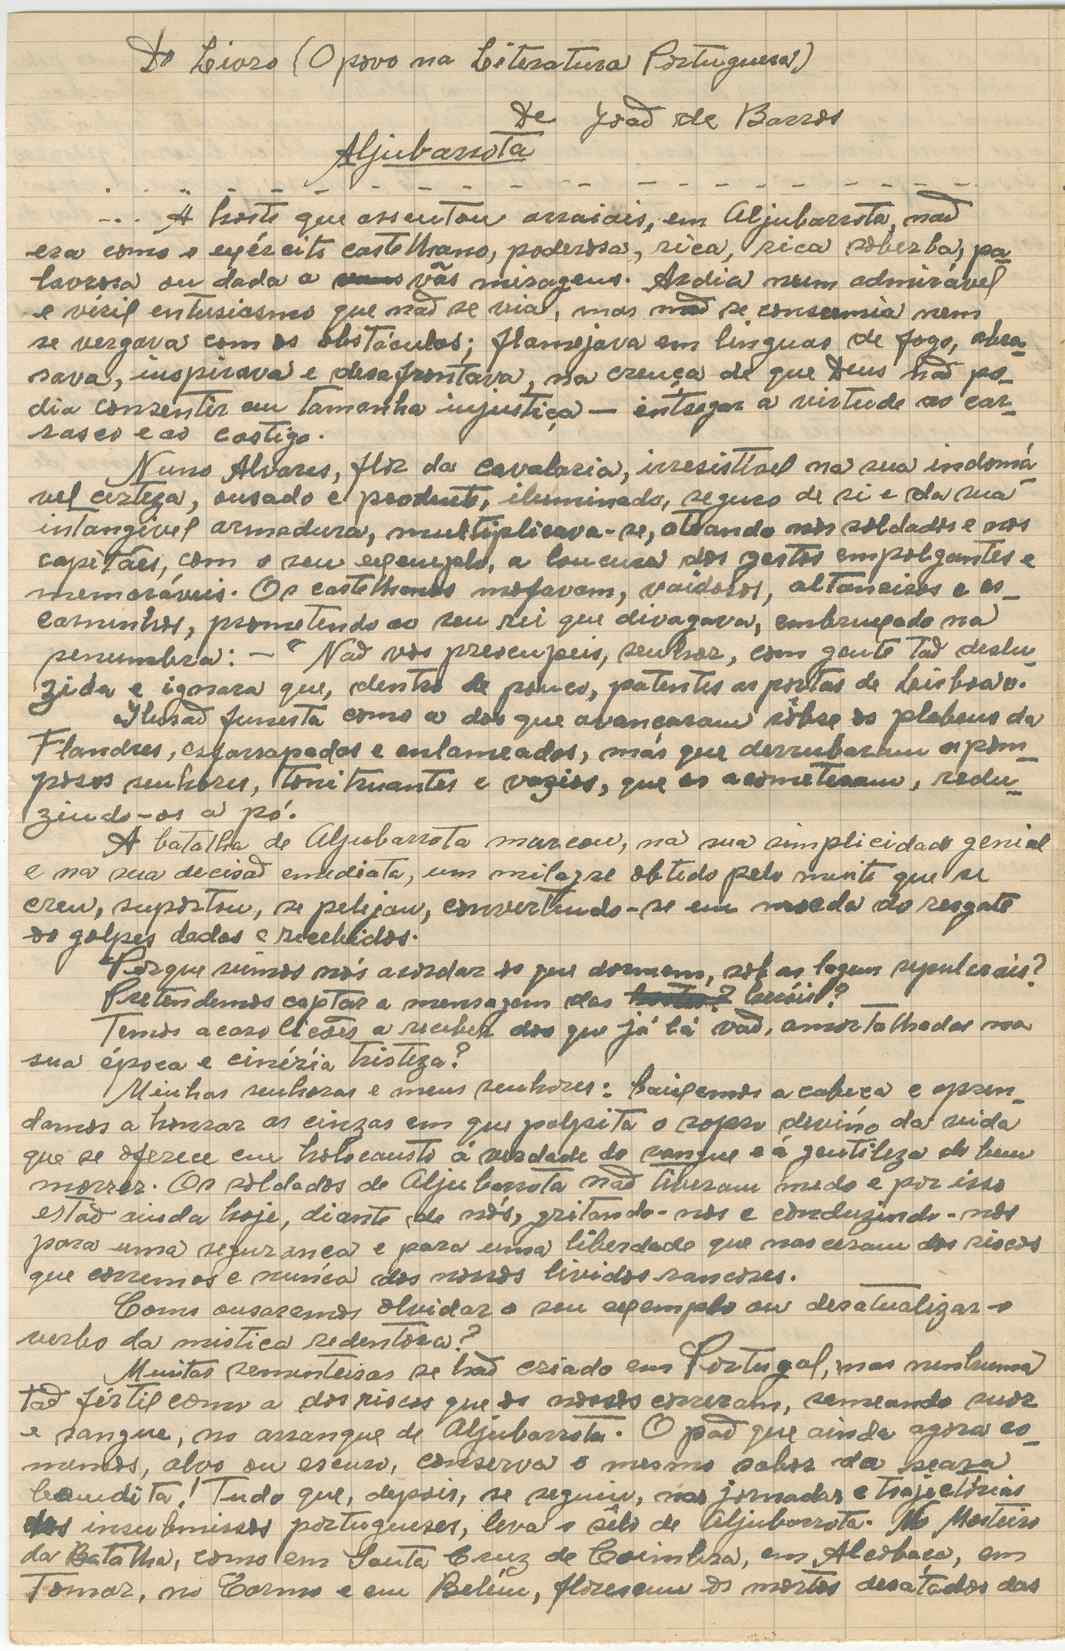 Do Livro (O povo na Literatura Portuguesa)
De João de Barros
Aljubarrota
... A hoste que assentou arraiais, em Aljubarrota, não
era como o exército castelhano, poderosa, rica, rica soberba, pa-
lavrosa ou dada a vãs miragens. Ardia num admirável
e viril entusiasmo que não se via, mas não se consumia nem
se vergava com os obstáculos; flamejava em linguas de fogo, abra-
sava, inspirava e desafrontava, na crença de que Deus não po-
dia consentir em tamanha injustiça — entregar a virtude ao car-
rasco e ao castigo.
Nuno Alvares, flor da cavalaria, irresistível na sua indomá
vel certeza, ousado e prudente, iluminado, seguro de si e da sua
intangível armadura, multiplicava-se, ateando nos soldados e nos
capitães, com o seu exemplo, a loucura dos gestos empolgantes e
memoráveis. Os castelhanos mofavam, vaidosos, altaneiros e es-
carninhos, prometendo ao seu rei que divagava, embruxado na
penumbra: — "Não vos preocupeis, senhor, com gente tão deslu-
zida e ignara que, dentro de pouco, patentes as portas de Lisboa".
Ilusão funesta como a dos que avançaram sôbre os plebeus da
Flandres, esfarrapados e enlameados, mas que derrubaram os pom-
posos senhores, tonitruantes e vazios, que os acometeram, redu-
zindo-os a pó.
A batalha de Aljubarrota marcou, na sua simplicidade genial
e na sua decisão imediata, um milagre obtido pelo muito que se
creu, suportou, se pelejou, convertendo-se em moeda do resgate
os golpes dados e recebidos.
Porque viémos nós acordar os que dormem, sob as lagens sepulcrais?
Pretendemos captar a mensagem dos heróis?
Temos acaso lições a receber dos que já lá vão, amortalhados na
sua época e cinéria tristeza?
Minhas senhoras e meus senhores: baixemos a cabeça e apren-
damos a honrar as cinzas em que palpita o sopro divino da vida
que se oferece em holocausto à verdade do sangue e à gentileza do bem
morrer. Os soldados de Aljubarrota não tiveram medo e por isso
estão ainda hoje, diante de nós, gritando-nos e conduzindo-nos
para uma segurança e para uma liberdade que nasceram dos riscos
que corremos e nunca dos nossos lividos rancores.
Como ousaremos olvidar o seu exemplo ou desatualizar o
verbo da mistica redentora?
Muitas sementeiras se hão criado em Portugal, mas nenhuma
tão fértil como a dos riscos que os nossos correram, semeando suor
e sangue, no arranque de Aljubarrota. O pão que ainda agora co-
memos, alvo ou escuro, conserva o mesmo sabor da seara
bemdita! Tudo que, depois, se seguiu, nas jornadas e trajectórias
dos insubmissos portugueses, leva o sêlo de Aljubarrota. No Mosteiro
da Batalha, como em Santa Cruz de Coimbra, em Alcobaça, em
Tomar, no Carmo e em Belém, florescem os mortos desatados das